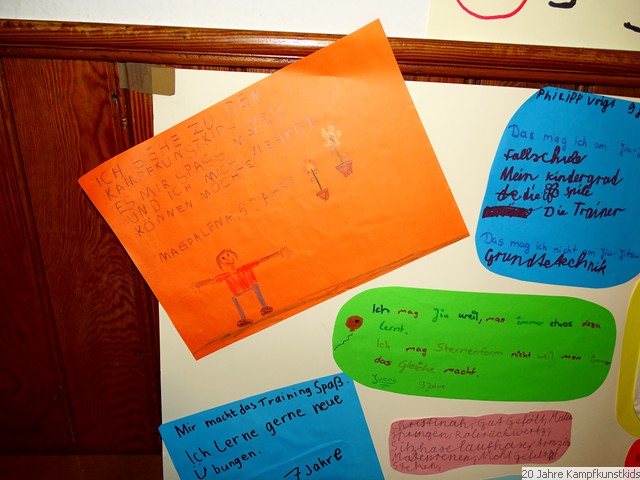 ICH GEHE ZU DEN
KAMPFKUNSTKIDS WEIL
ES MIR SPASS MACHT
UND ICH MICH WEHREN
KÖNNEN MÖCHTE
MAGDALENA
Philipp Voigt 9
Das mag ich am Jiu-Jits
Fallschule
Mein Kindergrad
die spile
Die Trainer
Das mag ich nicht am Jiu-Jitsu
Grundtetechnik
Ich mag Jiu weil, man immer etwas dazu
lernt.
Ich mag Sternenform nicht weil man immer
das Gleiche macht.
9 Jahre
Mir macht das Training Spaß.
Ich Lerne gerne neue
Übungen.
7 Jahre
Gut Gefält,
springen, Rolerückwerts,
Nicht gefält
Stehen,
20 Jahre Kampfkunstkids